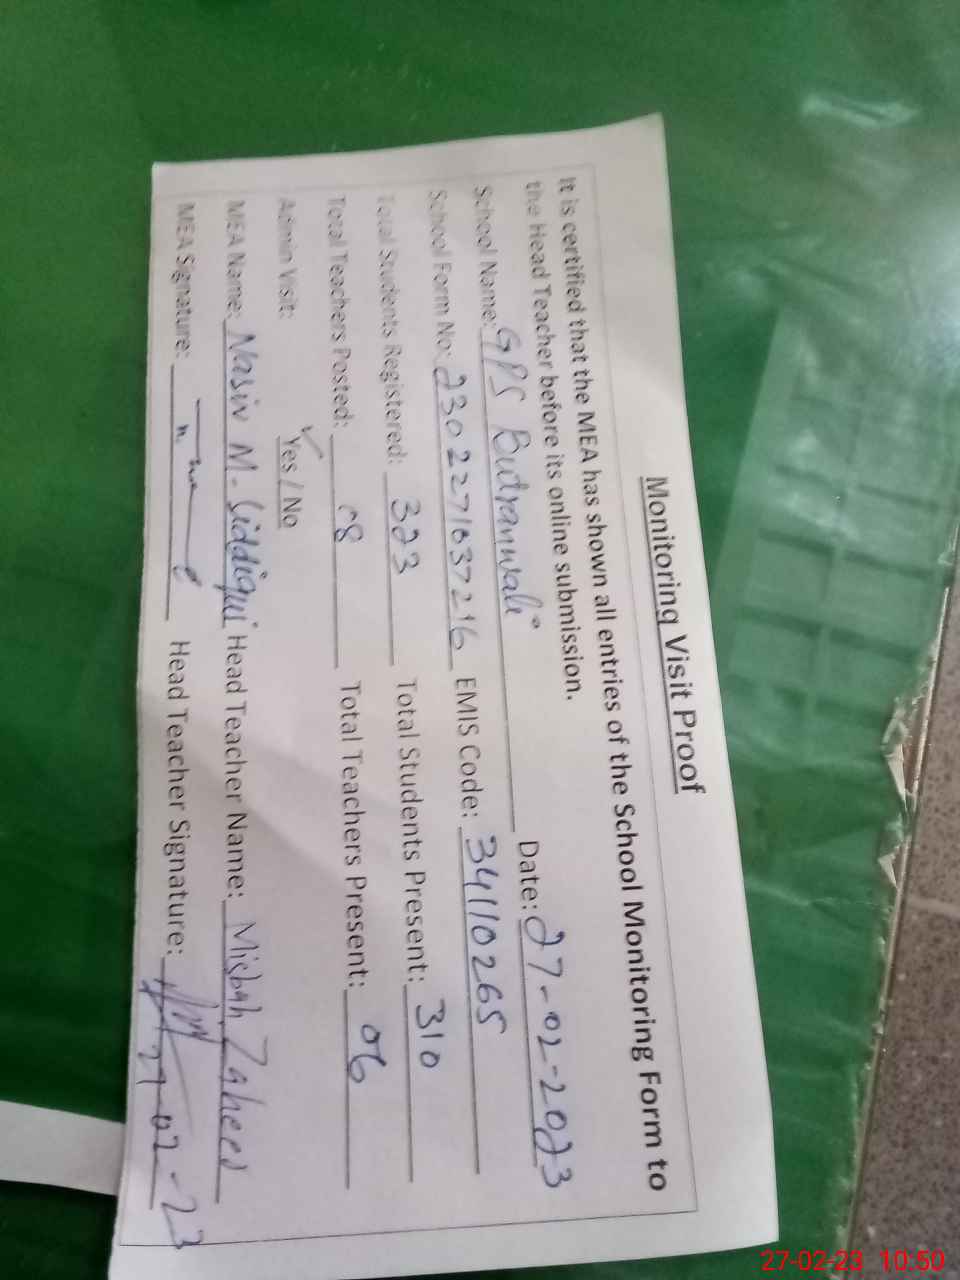 Monitoring Visit Proof
It is certified that the MEA has shown all entries of the School Monitoring Form to
the Head Teacher before its online submission.
School Name: GPS Butranwali Date: 27-02-2023
School Form No: 2302271637216 EMIS Code: 34110265
Total Students Registered: 323 Total Students Present: 310
Total Teachers Posted: 08 Total Teachers Present: 06
Admin Visit: Yes / No
MEA Name: Nasir M. Siddiqui Head Teacher Name: Misbah Zaheer
MEA Signature: Head Teacher Signature:
27-02-23
27-02-23 10:50